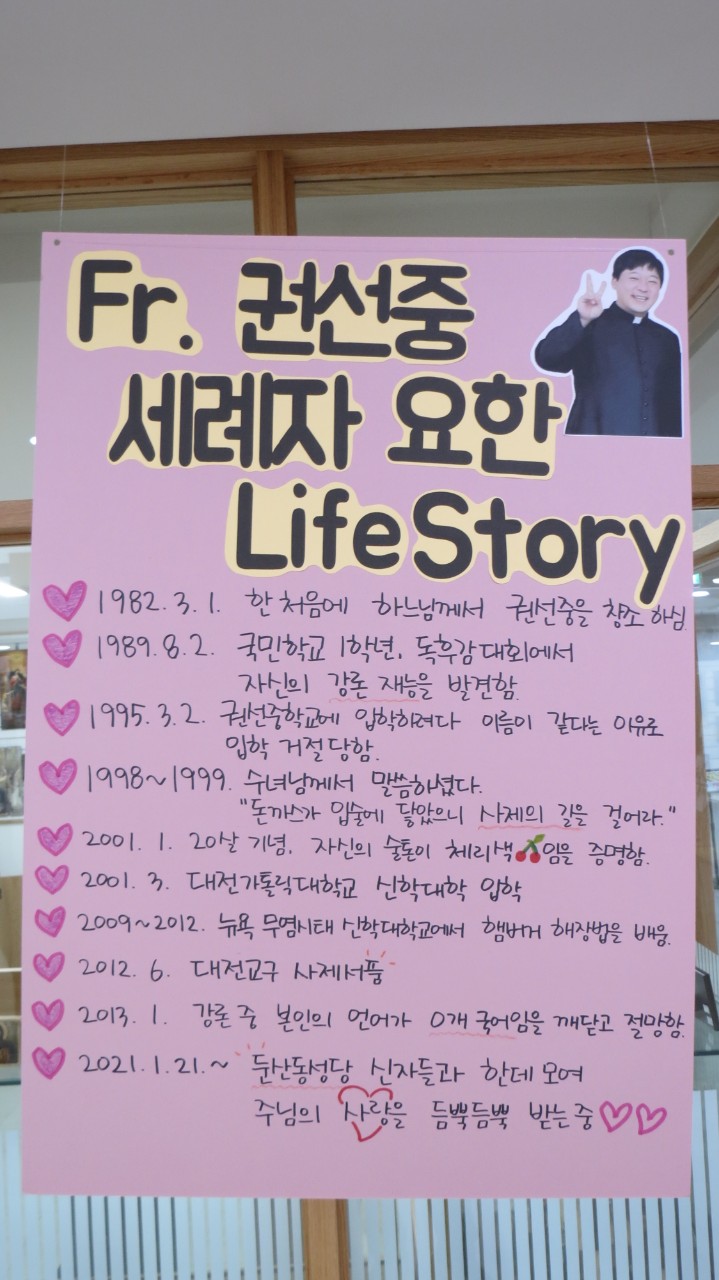 Fr. 권선중
세례자 요한
Life Story
1982. 3. 1. 한 처음에 하느님께서 권선중을 창조 하심.
1989. 8. 2. 국민학교 1학년, 독후감 대회에서
자신의 강론 재능을 발견함.
1995. 3. 2. 권선중학교에 입학하려다 이름이 같다는 이유로
입학 거절 당함.
1998~1999. 수녀님께서 말씀하셨다.
"돈까스가 입술에 닿았으니 사제의 길을 걸어라."
2001. 1. 20살 기념, 자신의 술톤이 체리색🍒임을 증명함.
2001. 3. 대전가톨릭대학교 신학대학 입학
2009~2012. 뉴욕 무염시태 신학대학교에서 햄버거 해장법을 배움.
2012. 6. 대전교구 사제서품
2013. 1. 강론 중 본인의 언어가 0개 국어임을 깨닫고 절망함.
2021. 1. 21. ~ 둔산동성당 신자들과 한데 모여
주님의 사랑을 듬뿍듬뿍 받는 중♡♡